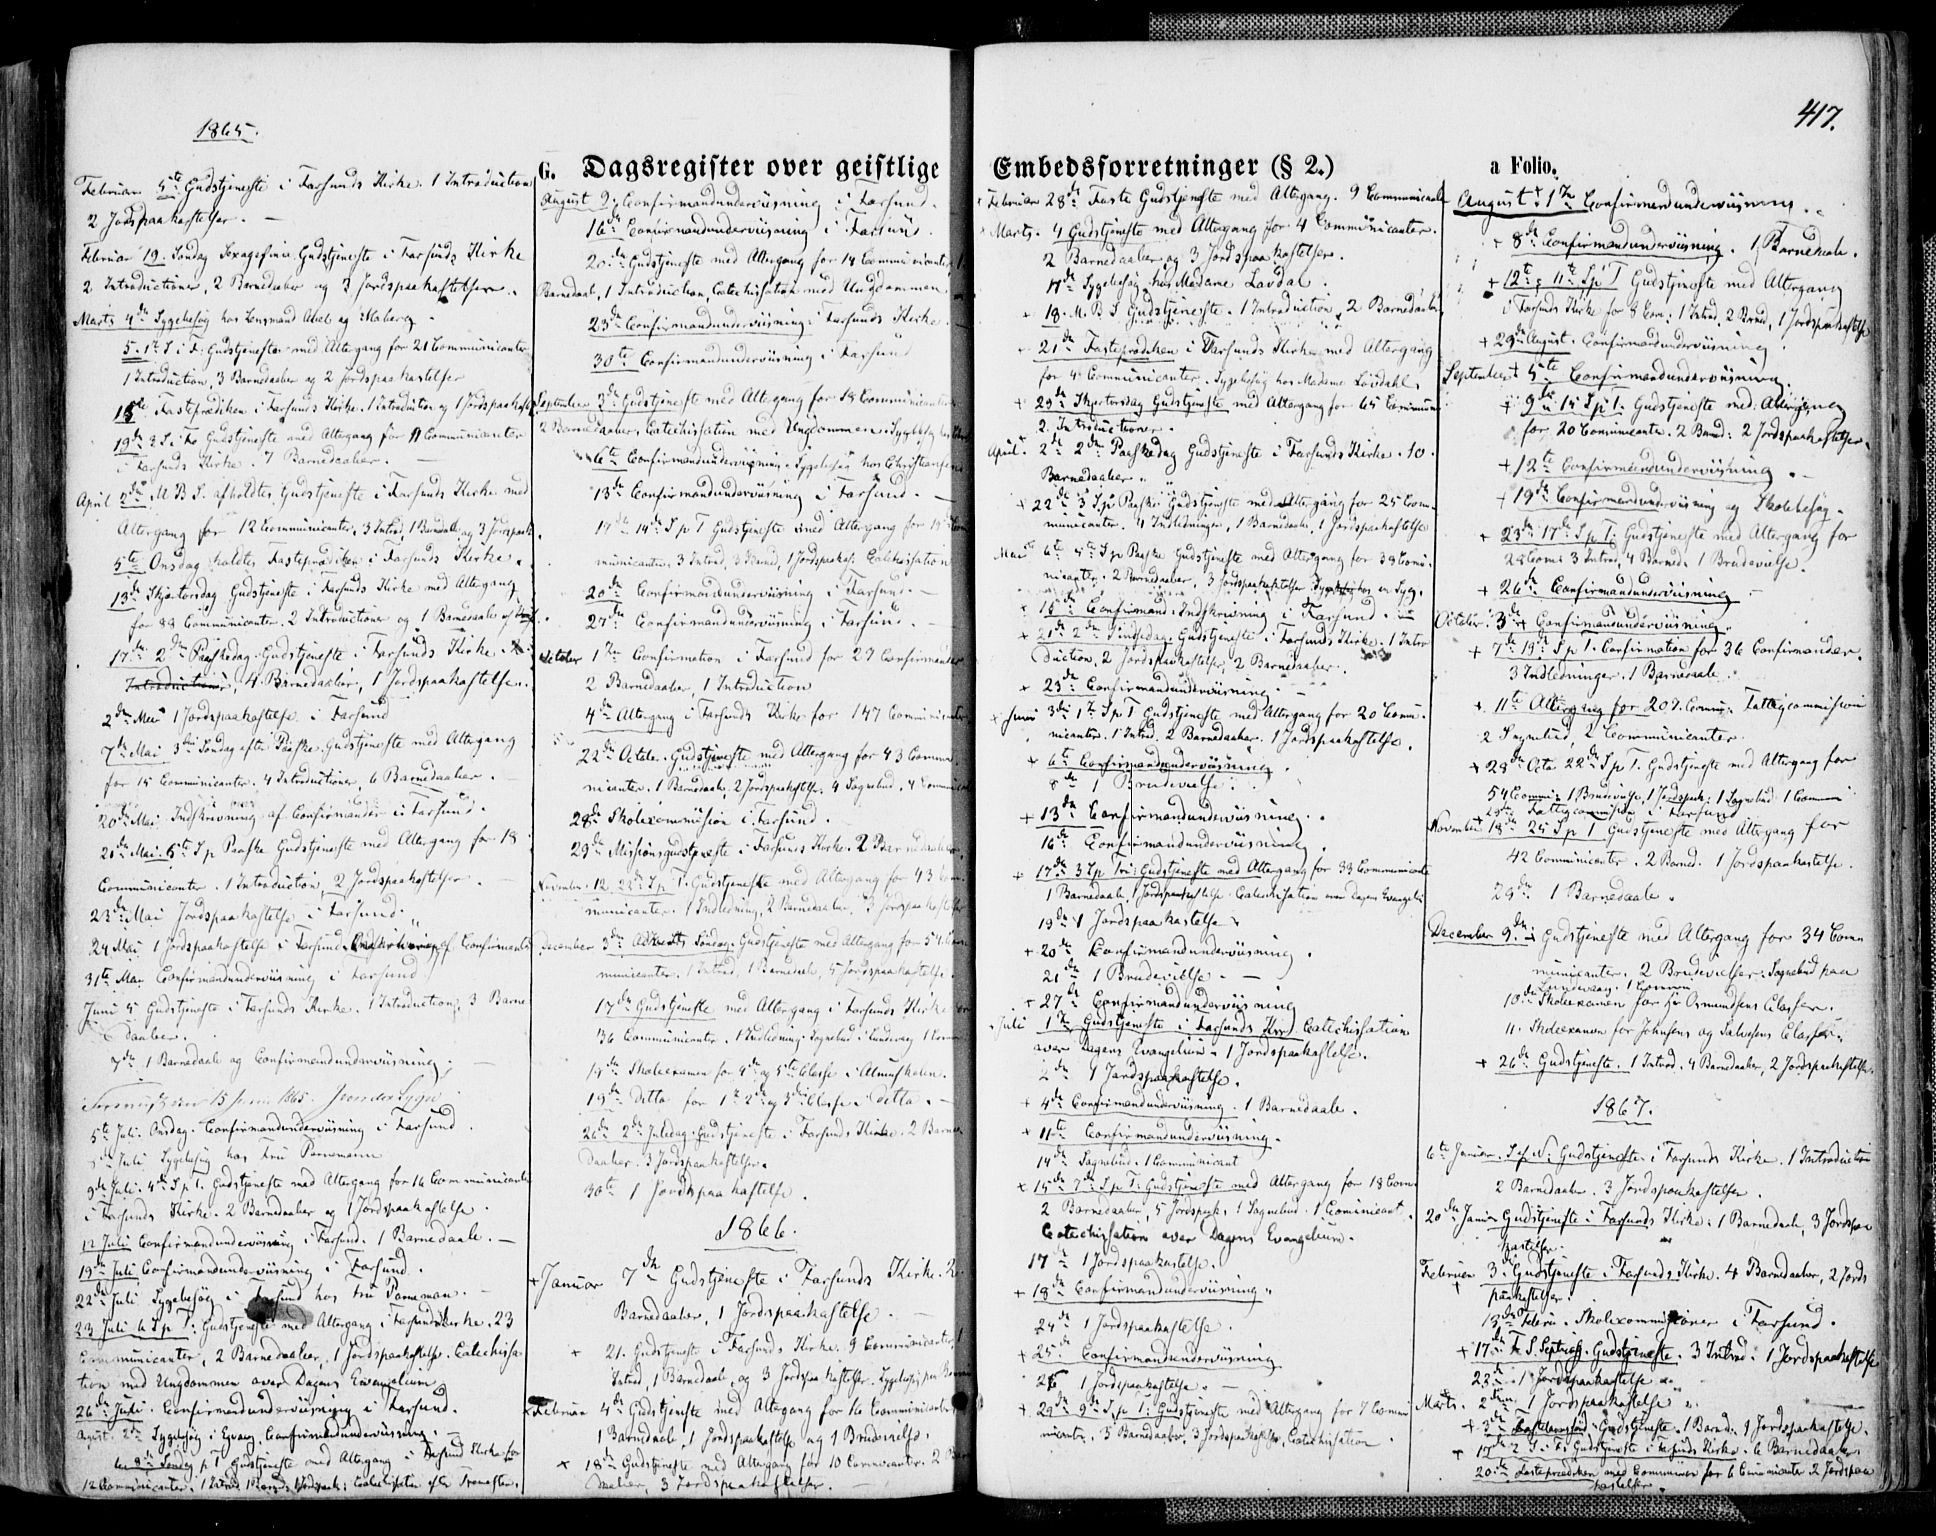 417.
1865.
G. Dagsregister over geistlige Embedsforretninger (§ 2.) a Folio.
Februar 5te Gudstjeneste i Farsunds Kirke. 1 Introduction
2 Jordspaakastelser.
Februar 19. Søndag Sexagesima Gudstjeneste i Farsunds Kirke
2 Introductioner, 2 Barnedaaber og 3 Jordspaakastelser.
Marts 4de Sygebesøg hos Lensmand Abel og Maberg
5. 1te S. i F. Gudstjeneste med Altergang for 21 Communicanter
1 Introduction, 3 Barnedaaber og 2 Jordspaakastelser
Fasteprædiken i Farsunds Kirke. 1 Introduction og 1 Jordspaakast.
19de 3 S. i Fa Gudstjeneste med Altergang for 11 Communicanter
i Farsunds Kirke. 7 Barnedaaber.
April 2den M. B. D. afholdtes Gudstjeneste i Farsunds Kirke med
Altergang for 12 Communicanter, 3 Introd, 1 Barnedaab og 3 Jordspaak
5te Onsdag holdtes Fasteprædiken i Farsunds Kirke.
13de Skjærtorsdag Gudstjeneste i Farsunds Kirke med Altergang
for 88 Communicanter. 2 Introductioner og 1 Barnedaab
17de 2den Paaskedag. Gudstjeneste i Farsunds Kirke.
Introductioner, 4 Barnedaaber, 1 Jordspaakastelse.
2den Mai 1 Jordspaakastelse i Farsund
7de Mai 3die Søndag efter Paaske. Gudstjeneste med Altergang
for 15 Communicanter. 4 Introductioner, 6 Barnedaaber.
20de Mai Indskrivning af Confirmander i Farsund.
21de Mai. 5te S. p Paaske Gudstjeneste med Altergang for 18
Communicanter. 1 Introduction, 2 Jordspaakastelser.
23de Mai Jordspaakastelse i Farsund.
24 Mai 1 Jordspaakastelse i Farsund. Indskrivning af Confirmander
31te Mai Confirmandunderviisning i Farsund
Juni 5 Gudstjeneste i Farsunds Kirke. 1 Introduction, 3 Barne
daaber.
7de 1 Barnedaab og Confirmandunderviisning.
15 Juni 1865.
5te Juli. Onsdag. Confirmandunderviisning i Farsund.
Juli Sygebesøg hos Fru
9de Juli. 4de S p T. Gudstjeneste med Altergang for 16 Communicanter
i Farsunds Kirke. 2 Barnedaaber og 1 Jordspaakastelse.
12 Juli Confirmandunderviisning i Farsund. 1 Barnedaab.
19de Juli Confirmandunderviisning i Farsund.
22de Juli Sygebesøg i Farsund hos Fru
23 Juli 6 S p T: Gudstjeneste med Altergang i Farsunds Kirke. 23
Communicanter, 2 Barnedaaber, 1 Jordspaakastelse. Catechisa
tion med Ungdommen over Dagens Evangelium
26de Juli. Confirmandunderviisning i Farsund.
August. 2den Sygebesøg i Confirmandunderviisning.
Søndag p T Gudstjeneste med Altergang i Farsund Kirke for
12 Communicanter. 1 Introd Catechisation efter Tjenesten.
August 9: Confirmandunderviisning i Farsund.
16de Confirmandunderviisning i Farsund.
20de Gudstjeneste med Altergang for 18 Communicanter, 1
Barnedaab, 1 Introduction, Catechisation med Ungdommen
23de Confirmandunderviisning i Farsunds Kirke.
30te Confirmandunderviisning i Farsund
September 3de Gudstjeneste med Altergang for 18 Communicanter
2 Barnedaaber, Catechisation med Ungdommen. Sygebesøg
6te Confirmandunderviisning. Sygebesøg hos Christiansen
13de Confirmandunderviisning i Farsund.
14de S p T Gudstjeneste med Altergang for 15 Com
municanter 3 Introd, 3 Barned, 1 Jordspaakast. Catechisation
20de Confirmandunderviisning i Farsund.
27de Confirmandunderviisning i Farsund.
October 1te Confirmation i Farsund for 27 Confirmander
2 Barnedaaber, 1 Introduction
4de Altergang i Farsunds Kirke for 147 Communicanter
22de October. Gudstjeneste med Altergang for 43 Commu
nicanter. 1 Barnedaab, 2 Jordspaakastelse. 4 Sognebud, 4 Communic
28de Skolecommission i Farsund.
29de Missionsgudstjeneste i Farsunds Kirke. 2 Barnedaaber.
November. 12. 22de S p T. Gudstjeneste med Altergang for 43 Com
municanter. 1 Indledning, 2 Barnedaaber, 3 Jordspaakastelser
December 3de Advents Søndag. Gudstjeneste med Altergang for 54 Com
municanter. 1 Introd, 1 Barnedaab, 5 Jordspaakastelse.
17de Gudstjeneste med Altergang i Farsunds Kirke for
36 Communicanter. 1 Indledning. Sognebud i Lundevaag 1 Comm
15de Skoleexamen for 4de og 5te Classe i Almueskolen.
19de Ditto for 1te 2de og 3die Classe i ditto.
26de 2den Juledag. Gudstjeneste i Farsunds Kirke. 2 Barne
daaber. 3 Jordspaakastelser.
30te 1 Jordspaakastelse.
1866.
+ Januar 7de Gudstjeneste i Farsunds Kirke. 2
Barnedaaber, 1 Jordspaakastelse
+ 21. Gudstjeneste i Farsunds Kirke. 9 Communicanter, 1
Introd, 1 Barnedaab, og 3 Jordspaakastelser. Sygebesøg
Februar 4de Gudstjeneste med Altergang for 16 Communicanter
1 Barnedaab, 1 Jordspaakastelse og 1 Brudevielse.
+ 18de Gudstjeneste med Altergang for 10 Communicanter. 2 Bar
nedaaber, 3 Jordspaakastelser.
+ Februar 28de Faste Gudstjeneste med Altergang. 9 Communicanter
+ Marts. 4 Gudstjeneste med Altergang for 4 Communicanter.
2 Barnedaaber og 3 Jordspaakastelser.
17de Sygebesøg hos Madame Lovdal.
+ 18. M. B D Gudstjeneste. 1 Introduction, 2 Barnedaaber,
+ 21de Fasteprædiken i Farsunds Kirke med Altergang
for 4 Communicanter. Sygebesøg hos Madame Lovdahl.
+ 29de Skjærtorsdag Gudstjeneste med Altergang for 65 Commun
2 Introductioner.
April. 2de 2den Paaskedag Gudstjeneste i Farsunds Kirke. 10.
Barnedaaber.
+ 22de 3 S p Paaske Gudstjeneste med Altergang for 25 Com
municanter. 4 Indledninger, 1 Barnedaab, 1 Jordspaakastelse
Mai 6te 5te S p Paaske Gudstjeneste med Altergang for 38 Commu
nicanter. 2 Barnedaaber, 3 Jordspaakastelser Sygebesøg hos en Syg.
+ 15de Confirmand-Indskrivning i Farsund.
+ 21de 2den Pintsedag. Gudstjeneste i Farsunds Kirke. 1 Intro
duction, 2 Jordspaakastelser, 2 Barnedaaber.
+ 23de Confirmandunderviisning.
+ Juni 3de 1te S p T Gudstjeneste med Altergang for 20 Commu
nicanter. 1 Introd. 2 Barnedaaber. 1 Jordspaakastelse.
+ 6te Confirmandunderviisning.
8de 1 Brudevielse.
+ 13de Confirmandunderviisning.
16de Confirmandunderviisning.
+ 17de 3 S p Tri: Gudstjeneste med Altergang for 33 Communicanter
1 Barnedaab, 1 Jordspaakastelse Catechisation over Dagens Evangeli
19de 1 Jordspaakastelse
+ 20de Confirmandunderviisning.
21de 1 Brudevielse.
+ 27de Confirmandunderviisning
+ Juli 1te Gudstjeneste i Farsunds Kirke Catechisation
over Dagens Evangelium. 1 Jordspaakastelse.
2de 1 Jordspaakastelse.
+ 4de Confirmandunderviisning. 1 Barnedaab.
+ 11te Confirmandunderviisning.
14de Sognebud. 1 Communicant
+ 15de 7de S p T: Gudstjeneste med Altergang for 18 Com
2 Barnedaaber, 5 Jordspaak, 1 Sognebud. 1 Communicant.
Catechisation over Dagens Evangelium.
17de 1 Jordspaakastelse.
+ 18de Confirmandunderviisning.
24de 1 Jordspaakastelse.
+ 25de Confirmandunderviisning
26 1 Jordspaakastelse.
+ 29de 9de S p T: Gudstjeneste med Altergang for 7 Commu
nicanter, 3 Barnedaaber, 3 Jordspaakastelser, Catechisation.
August 1te Confirmandunderviisning.
+ 8de Confirmandunderviisning. 1 Barnedaab.
+ 12te 11te S p T Gudstjeneste med Altergang
i Farsunds Kirke for 8 Com: 1 Introd, 2 Barned, 1 Jordspaakastelse
+ 29de August. Confirmandunderviisning
September + 5te Confirmandunderviisning.
+ 9de 15 S p T. Gudstjeneste med Altergang
for 20 Communicanter. 2 Barned: 2 Jordspaakastelser.
+ 12te Confirmandunderviisning.
+ 19de Confirmandunderviisning og Skolebesøg.
+ 23de 17de S p T: Gudstjeneste med Altergang for
28 Com: 3 Introd, 4 Barned. 1 Brudevielse.
+ 26de Confirmandunderviisning
October. 3de + Confirmandunderviisning.
+ 7de 19de S p T. Confirmation for 36 Confirmander.
3 Indledninger. 1 Barnedaab.
+ 11te Altergang for 207. Commu: Fattigcommission
2 Sognebud, 2 Communicanter.
+ 28de Octo 22de S p T. Gudstjeneste med Altergang for
54 Commu: 1 Brudevielse, 1 Jordspaak: 1 Sognebud 1 Commun
Fattigcommission i Farsund
November 18de 25 S p T Gudstjeneste med Altergang for
42 Communicanter. 2 Barned. 1 Jordspaakastelse.
29de 1 Barnedaab.
December 9de + Gudstjeneste med Altergang for 34 Com
municanter. 2 Brudevielser. Sognebud paa
Lundevaag. 1 Commun
10de Skoleexamen for Hr Osmundsens Classer.
11. Skoleexamen for Johnsens og Salvesens Classer.
+ 26de Gudstjeneste. 1 Introd. 4 Barnedaaber, 2 Jordspaakastelse.
1867.
6te Januar. S. e. N: Gudstjeneste i Farsunds Kirke. 1 Introduction
2 Barnedaaber. 3 Jordspaakastelser.
20de Januar Gudstjeneste i Farsunds Kirke. 1 Barnedaab, 3 Jordspaa
kastelser.
Februar 3. Gudstjeneste i Farsunds Kirke. 4 Barnedaaber, 2 Jords
paakastelser.
13de Febru. Skolecommissioner i Farsund.
+ 17de S. Septuag. Gudstjeneste. 3 Introd. 1 Jordspaakastelse
22de 1 Jordspaakastelse
Marts. 2den 1 Jordspaakastelse.
+ 3de Gudstjeneste. 1 Barned. 1 Jordspaakastelse.
+ 2 S. i F. Gudstjeneste i Farsunds Kirke. 6 Barnedaaber.
20de Fasteprædiken med Communion for 6 Communicanter 2 Jordspaa
kastelser.